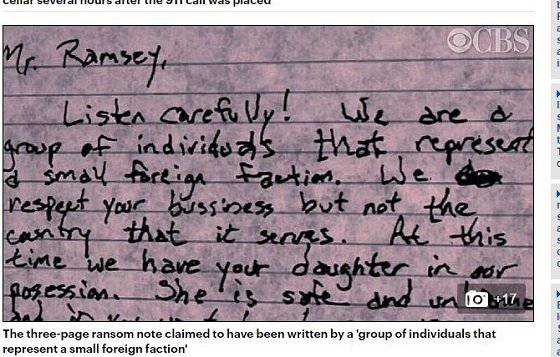 cellar several hours after the 911 call was placed
CBS
Mr. Ramsey,
Listen carefully! We are a
group of individuals that represent
a small foreign faction. We
respect your bussiness but not the
country that it serves. At this
time we have your daughter in our
posession. She is safe and
+17
The three-page ransom note claimed to have been written by a 'group of individuals that
represent a small foreign faction'